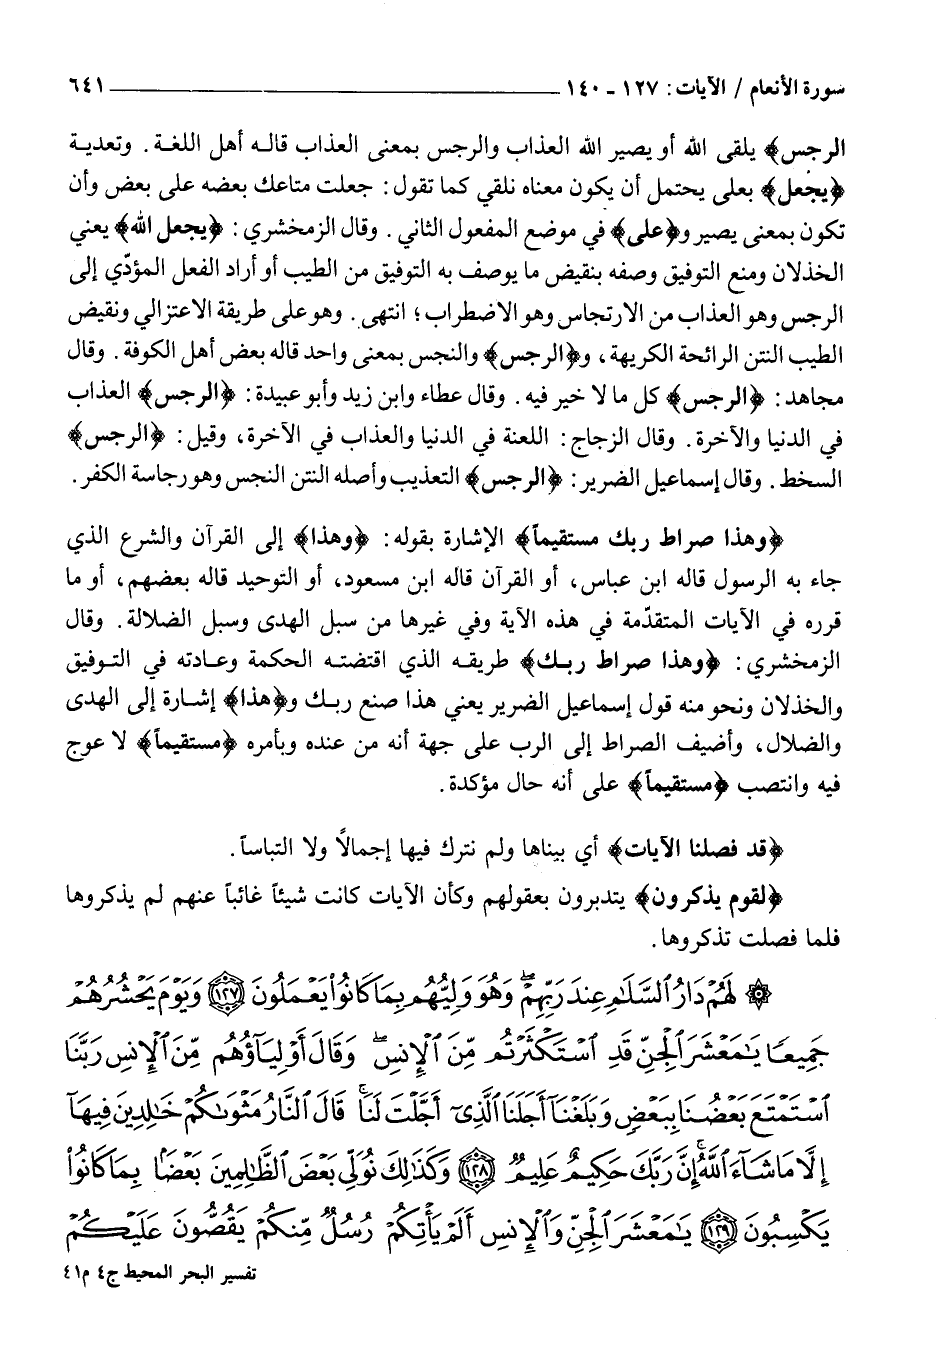 سورة الأنعام / الآيات : ١٢٧ - ١٤٠ ٦٤١
الرجس﴾ يلقى الله أو يصير الله العذاب والرجس بمعنى العذاب قاله أهل اللغة . وتعدية
﴿يجعل﴾ بعلى يحتمل أن يكون معناه نلقي كما تقول : جعلت متاعك بعضه على بعض وأن
تكون بمعنى يصير و﴿على﴾ في موضع المفعول الثاني . وقال الزمخشري : ﴿يجعل الله﴾ يعني
الخذلان ومنع التوفيق وصفه بنقيض ما يوصف به التوفيق من الطيب أو أراد الفعل المؤدّي إلى
الرجس وهو العذاب من الارتجاس وهو الاضطراب ؛ انتهى . وهو على طريقة الاعتزالي ونقيض
الطيب النتن الرائحة الكريهة ، و﴿الرجس﴾ والنجس بمعنى واحد قاله بعض أهل الكوفة . وقال
مجاهد : ﴿الرجس﴾ كل ما لا خير فيه . وقال عطاء وابن زيد وأبو عبيدة : ﴿الرجس﴾ العذاب
في الدنيا والآخرة . وقال الزجاج : اللعنة في الدنيا والعذاب في الآخرة ، وقيل : ﴿الرجس﴾
السخط . وقال إسماعيل الضرير : ﴿الرجس﴾ التعذيب وأصله النتن النجس وهو رجاسة الكفر .
﴿وهذا صراط ربك مستقيماً﴾ الإشارة بقوله : ﴿وهذا﴾ إلى القرآن والشرع الذي
جاء به الرسول قاله ابن عباس ، أو القرآن قاله ابن مسعود ، أو التوحيد قاله بعضهم ، أو ما
قرره في الآيات المتقدّمة في هذه الآية وفي غيرها من سبل الهدى وسبل الضلالة . وقال
الزمخشري : ﴿وهذا صراط ربك﴾ طريقه الذي اقتضته الحكمة وعادته في التوفيق
والخذلان ونحو منه قول إسماعيل الضرير يعني هذا صنع ربك و﴿هذا﴾ إشارة إلى الهدى
والضلال ، وأضيف الصراط إلى الرب على جهة أنه من عنده وبأمره ﴿مستقيماً﴾ لا عوج
فيه وانتصب ﴿مستقيماً﴾ على أنه حال مؤكدة .
﴿قد فصلنا الآيات﴾ أي بيناها ولم نترك فيها إجمالاً ولا التباساً .
﴿لقوم يذكرون﴾ يتدبرون بعقولهم وكأن الآيات كانت شيئاً غائباً عنهم لم يذكروها
فلما فصلت تذكروها .
۞ لَهُمْ دَارُ ٱلسَّلَـٰمِ عِندَ رَبِّهِمْ ۖ وَهُوَ وَلِيُّهُم بِمَا كَانُوا۟ يَعْمَلُونَ ١٢٧ وَيَوْمَ يَحْشُرُهُمْ
جَمِيعًا يَـٰمَعْشَرَ ٱلْجِنِّ قَدِ ٱسْتَكْثَرْتُم مِّنَ ٱلْإِنسِ ۖ وَقَالَ أَوْلِيَآؤُهُم مِّنَ ٱلْإِنسِ رَبَّنَا
ٱسْتَمْتَعَ بَعْضُنَا بِبَعْضٍ وَبَلَغْنَآ أَجَلَنَا ٱلَّذِىٓ أَجَّلْتَ لَنَا ۚ قَالَ ٱلنَّارُ مَثْوَىٰكُمْ خَـٰلِدِينَ فِيهَآ
إِلَّا مَا شَآءَ ٱللَّهُ ۗ إِنَّ رَبَّكَ حَكِيمٌ عَلِيمٌ ١٢٨ وَكَذَٰلِكَ نُوَلِّى بَعْضَ ٱلظَّـٰلِمِينَ بَعْضًۢا بِمَا كَانُوا۟
يَكْسِبُونَ ١٢٩ يَـٰمَعْشَرَ ٱلْجِنِّ وَٱلْإِنسِ أَلَمْ يَأْتِكُمْ رُسُلٌ مِّنكُمْ يَقُصُّونَ عَلَيْكُمْ
تفسير البحر المحيط ج٤ م٤١